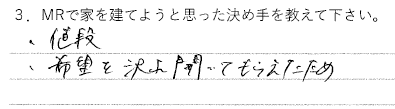 3．MRで家を建てようと思った決め手を教えて下さい。
・値段
・希望を沢山聞いてもらえたため